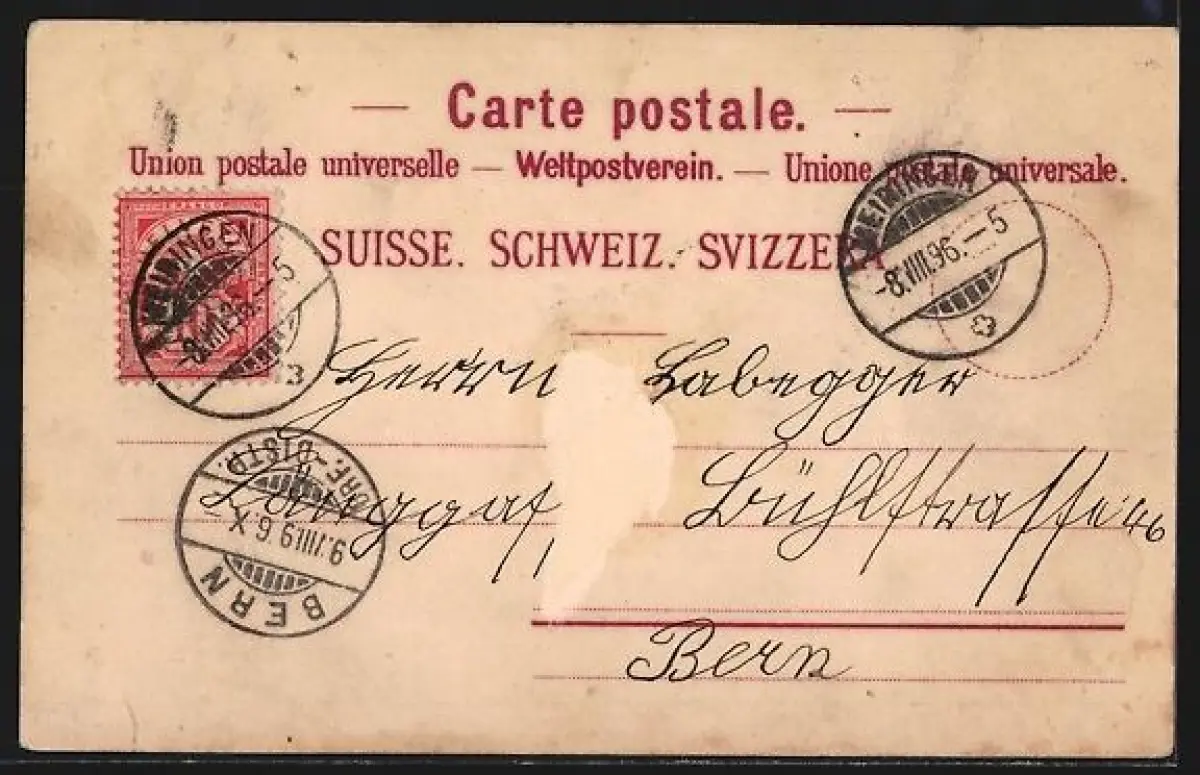 — Carte postale. —
Union postale universelle — Weltpostverein. — Unione postale universale.
SUISSE. SCHWEIZ. SVIZZERA
MEIRINGEN
-8.VIII.96.—5
MEIRINGEN
-8.VIII.96.—5
3
Herrn Labegger
Länggaß Bühlstrasse 46
Bern
BERN
9.VIII.96.X